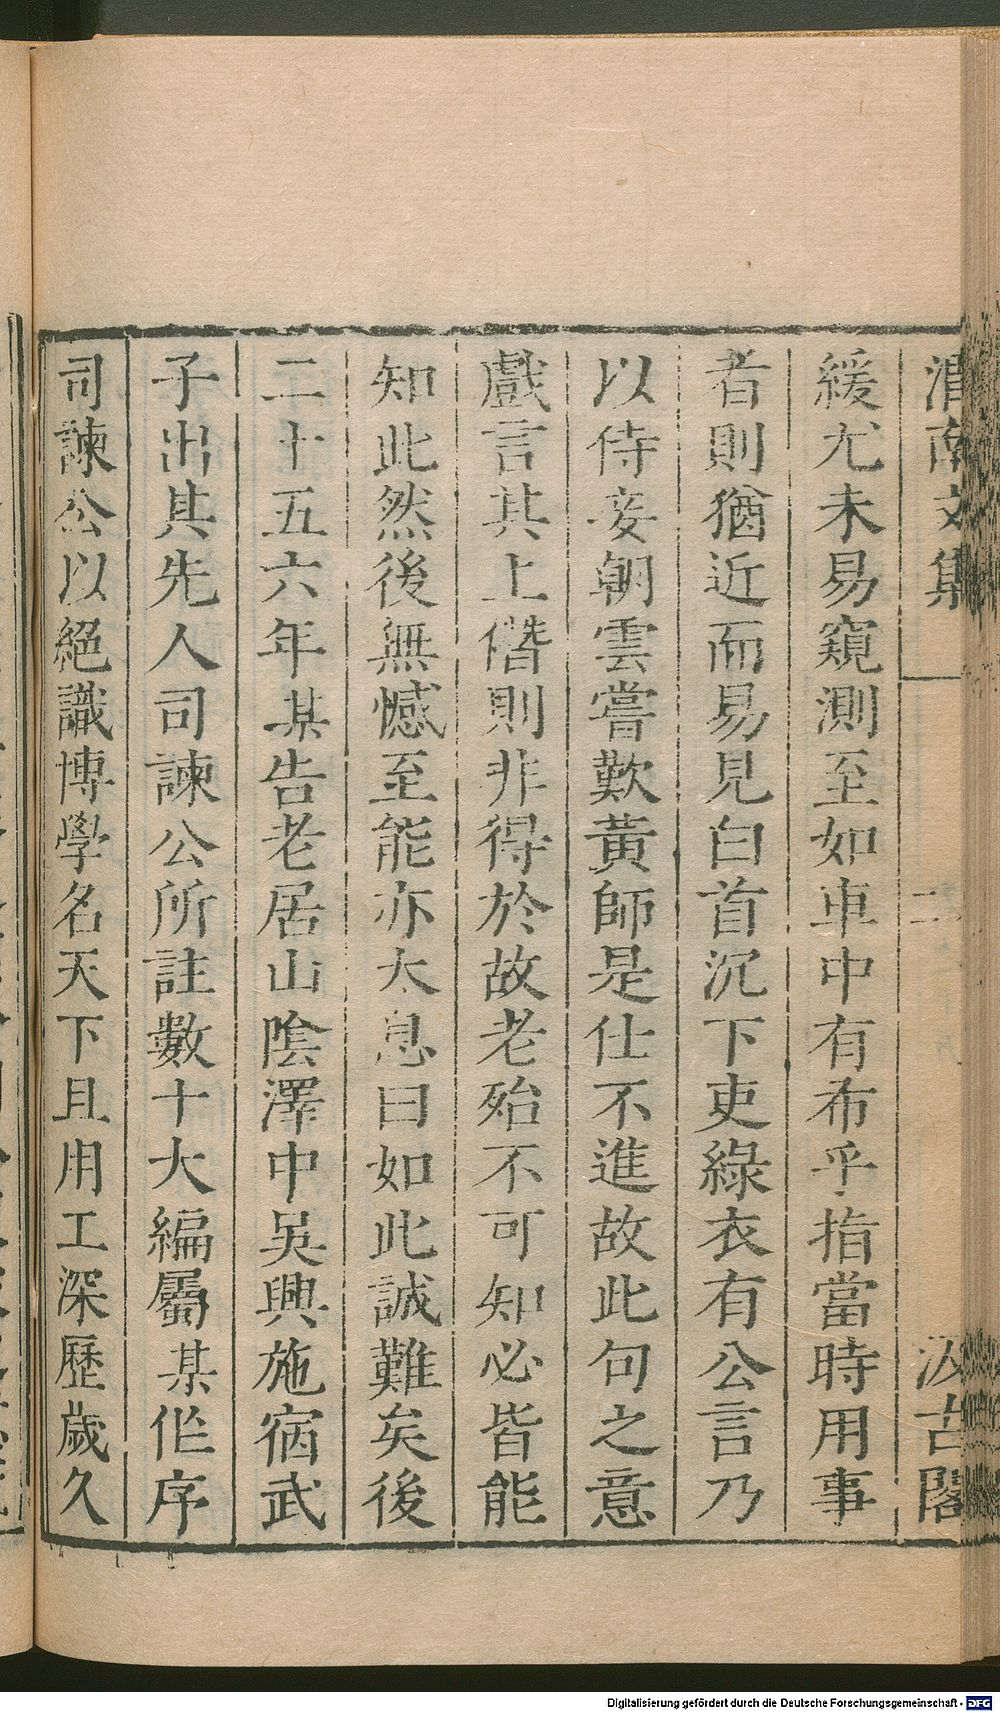 渭南文集 二 汲古閣
緩尤未易窺測至如車中有布乎指當時用事
者則猶近而易見白首沉下吏綠衣有公言乃
以侍妾朝雲嘗歎黃師是仕不進故此句之意
戲言其上僭則非得於故老殆不可知必皆能
知此然後無憾至能亦太息曰如此誠難矣後
二十五六年某告老居山陰澤中吳興施宿武
子出其先人司諫公所註數十大編屬某作序
司諫公以絕識博學名天下且用工深歷歲久
Digitalisierung gefördert durch die Deutsche Forschungsgemeinschaft - DFG